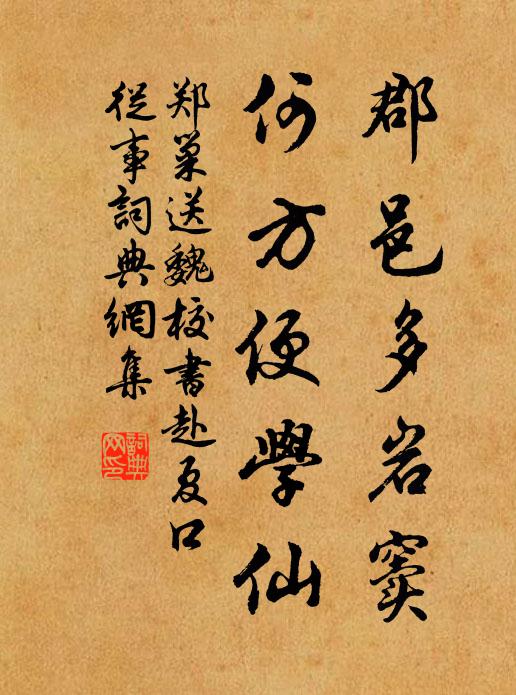 郡邑多岩窦
何方便學仙
郑巢送魏校書赴夏口
從事詞典網集
詞典
网印